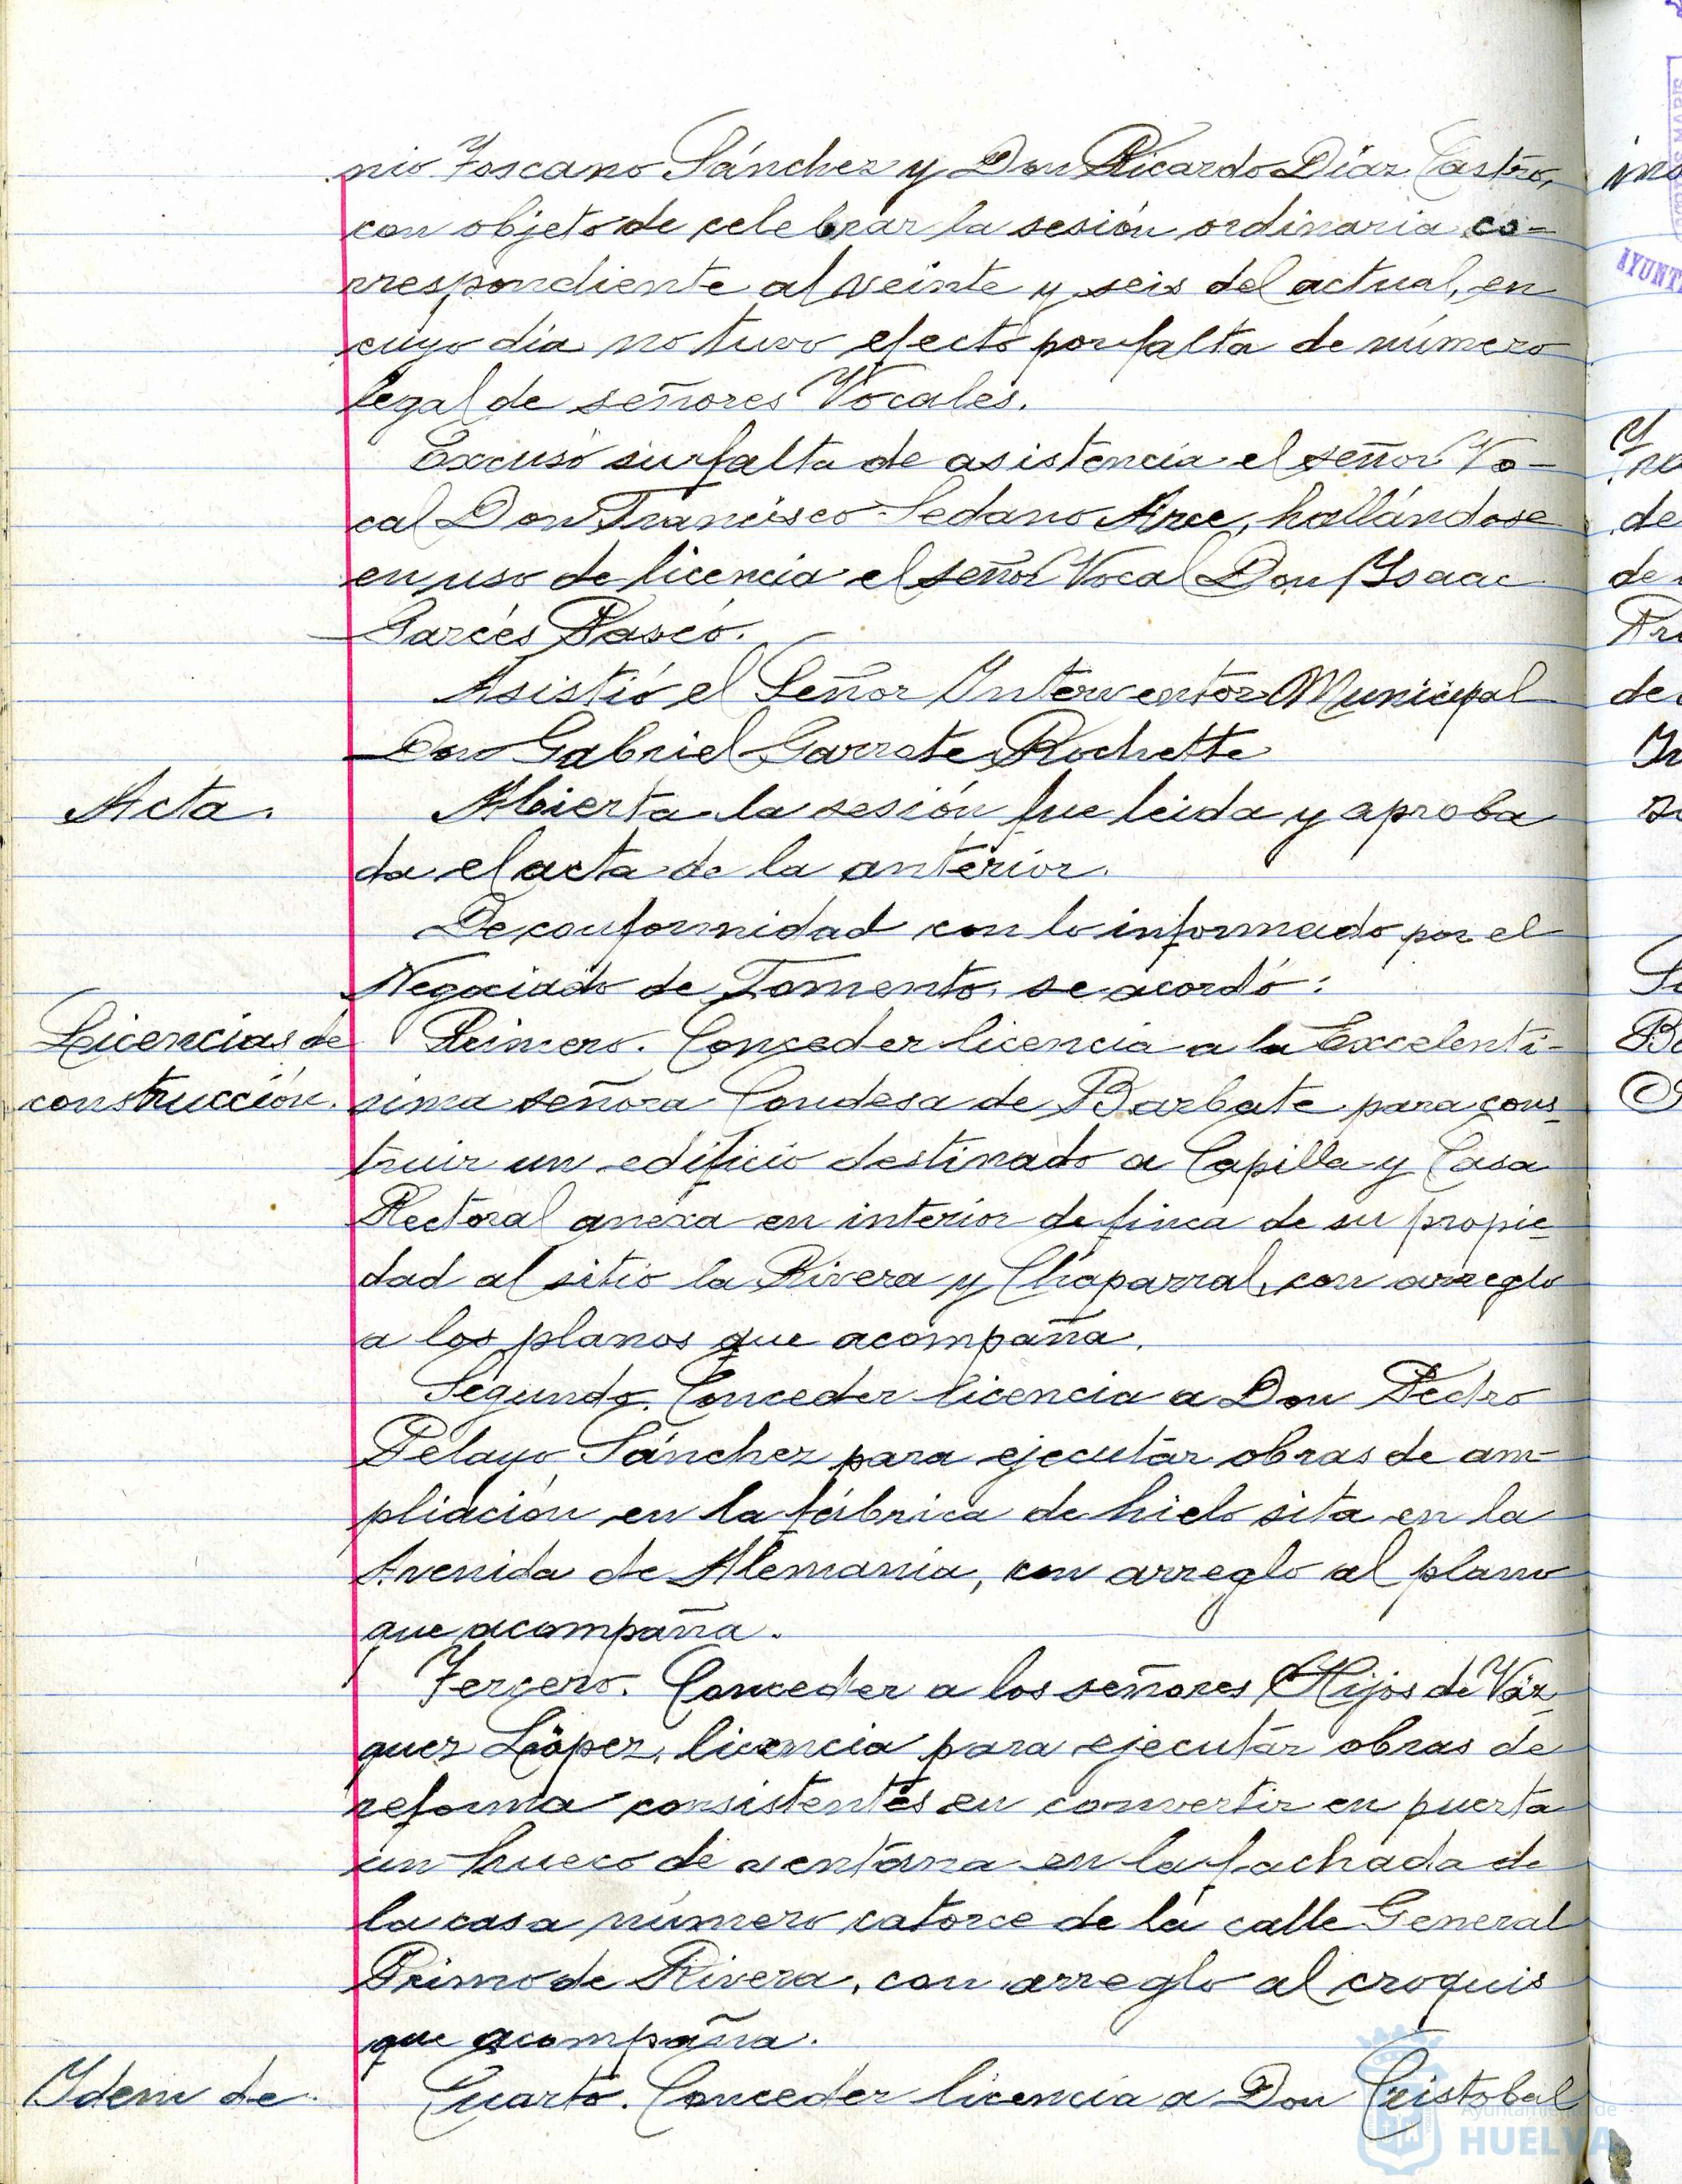 nio Toscano Sánchez y Don Ricardo Díaz Castro,
con objeto de celebrar la sesión ordinaria co-
rrespondiente al veinte y seis del actual, en
cuyo día no tuvo efecto por falta de número
legal de señores Vocales.
Excusó su falta de asistencia el señor Vo-
cal Don Francisco Sedano Arce, hallándose
en uso de licencia el señor Vocal Don Ysaac
Garcés Pascó.
Asistió el Señor Interventor Municipal
Don Gabriel Garrote Rochette
Acta.
Abierta la sesión fue leida y aproba
da el acta de la anterior.
De conformidad con lo informado por el
Negociado de Fomento, se acordó:
Licencias de
construcción.
Primero. Conceder licencia a la Excelenti-
sima señora Condesa de Barbate para cons
truir un edificio destinado a Capilla y Casa
Rectoral anexa en interior de finca de su propie
dad al sitio la Rivera y Chaparral, con arreglo
a los planos que acompaña.
Segundo. Conceder licencia a Don Pedro
Pelayo Sánchez para ejecutar obras de am-
pliación en la fábrica de hielo sita en la
Avenida de Alemania, con arreglo al plano
que acompaña.
Tercero. Conceder a los señores Hijos de Váz
quez López, licencia para ejecutar obras de
reforma consistentes en convertir en puerta
un hueco de ventana en la fachada de
la casa número catorce de la calle General
Primo de Rivera, con arreglo al croquis
que acompaña.
Ydem de
Cuarto. Conceder licencia a Don Cristobal
Ayuntamiento de
HUELVA